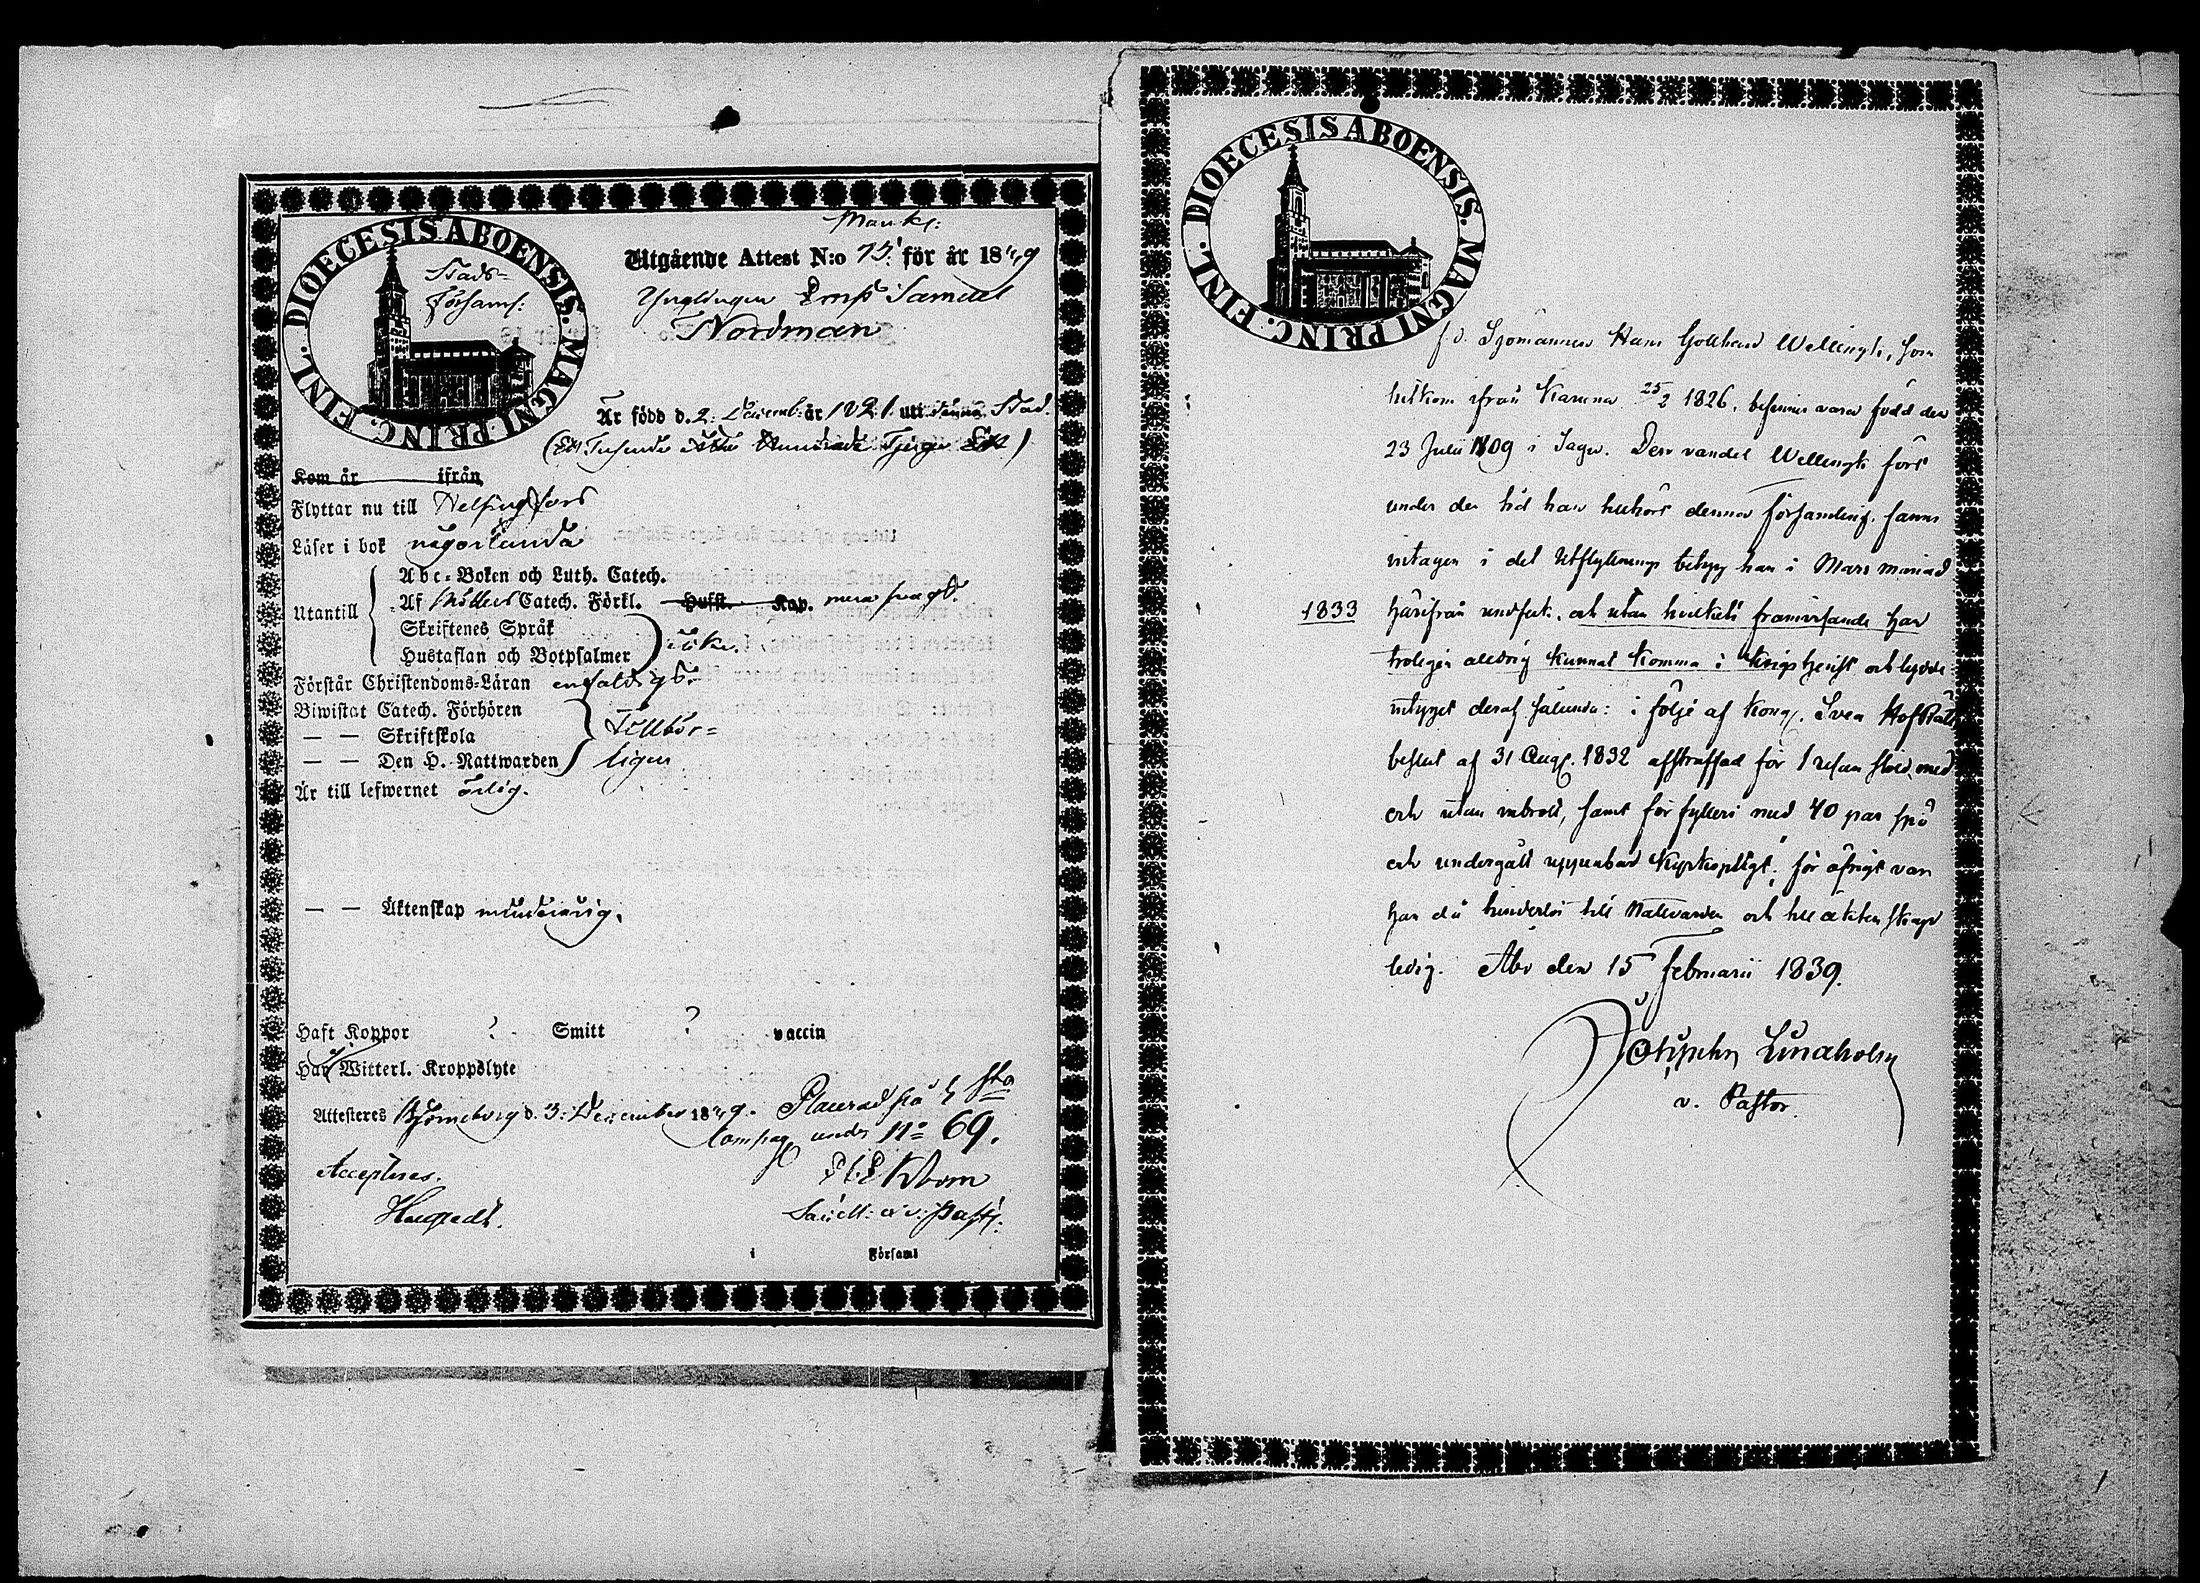 Mankl:
DIOECESIS ABOENSIS. MAGNI PRINC. FINL.
Stads-
Församl:
Utgående Attest N:o 75 för år 1849
Ynglingen Ernst Samuel
Nordman
Är född d. 2. Decemb: år 1821. uti Stad.
(Ett Tusende Åtta Hundrade Tjugu Ett)
Kom år ifrån
Flyttar nu till Helsingfors
Läser i bok någorlunda
Abc-Boken och Luth. Catech.
Utantill Af Möllers Catech. Förkl. Husst. Kap. mera svagt.
Skriftenes Språk
Hustaflan och Botpsalmer icke.
Förstår Christendoms-Läran enfaldigt.
Biwistat Catech. Förhören
— — Skriftskola
— — Den H. Nattwarden
Tillbör-
ligen
Är till lefwernet ärlig.
— — Äktenskap
Haft Koppor ? Smitt ? vaccin
Har Witterl. Kroppslyte
Attesteres Björneborg d. 3. December 1849. Placerad på
Compag under No 69.
Accepteras.
Ekbom
i Församl
DIOECESIS ABOENSIS. MAGNI PRINC. FINL.
f. d. Sjömannen Hans Gotthard Wellingk, som
hitkom ifrån Karuna 25/2 1826, befinnes vara född den
23 Julii 1809 i Sagu. Den vandel Wellingk fört
under den tid han tillhört denna församling, fanns
intagen i det utflyttnings betyg han i Mars månad
1833 härifrån undfick, och utan hvilkets framvisande han
troligen aldrig kunnat komma i krigstjenst och lydde
intyget deraf sålunda: i följe af Kongl. Svea Hof Rätts
beslut af 31 Aug. 1832 afstraffad för 1 resan stöld, med
och utan inbrott, samt för fylleri med 40 par spö
och undergått uppenbar Kyrkopligt; för öfrigt var
han då hinderlös till Nattvarden och till äktenskap
ledig. Åbo den 15 Februarii 1839.
Lindholm
v. Pastor.